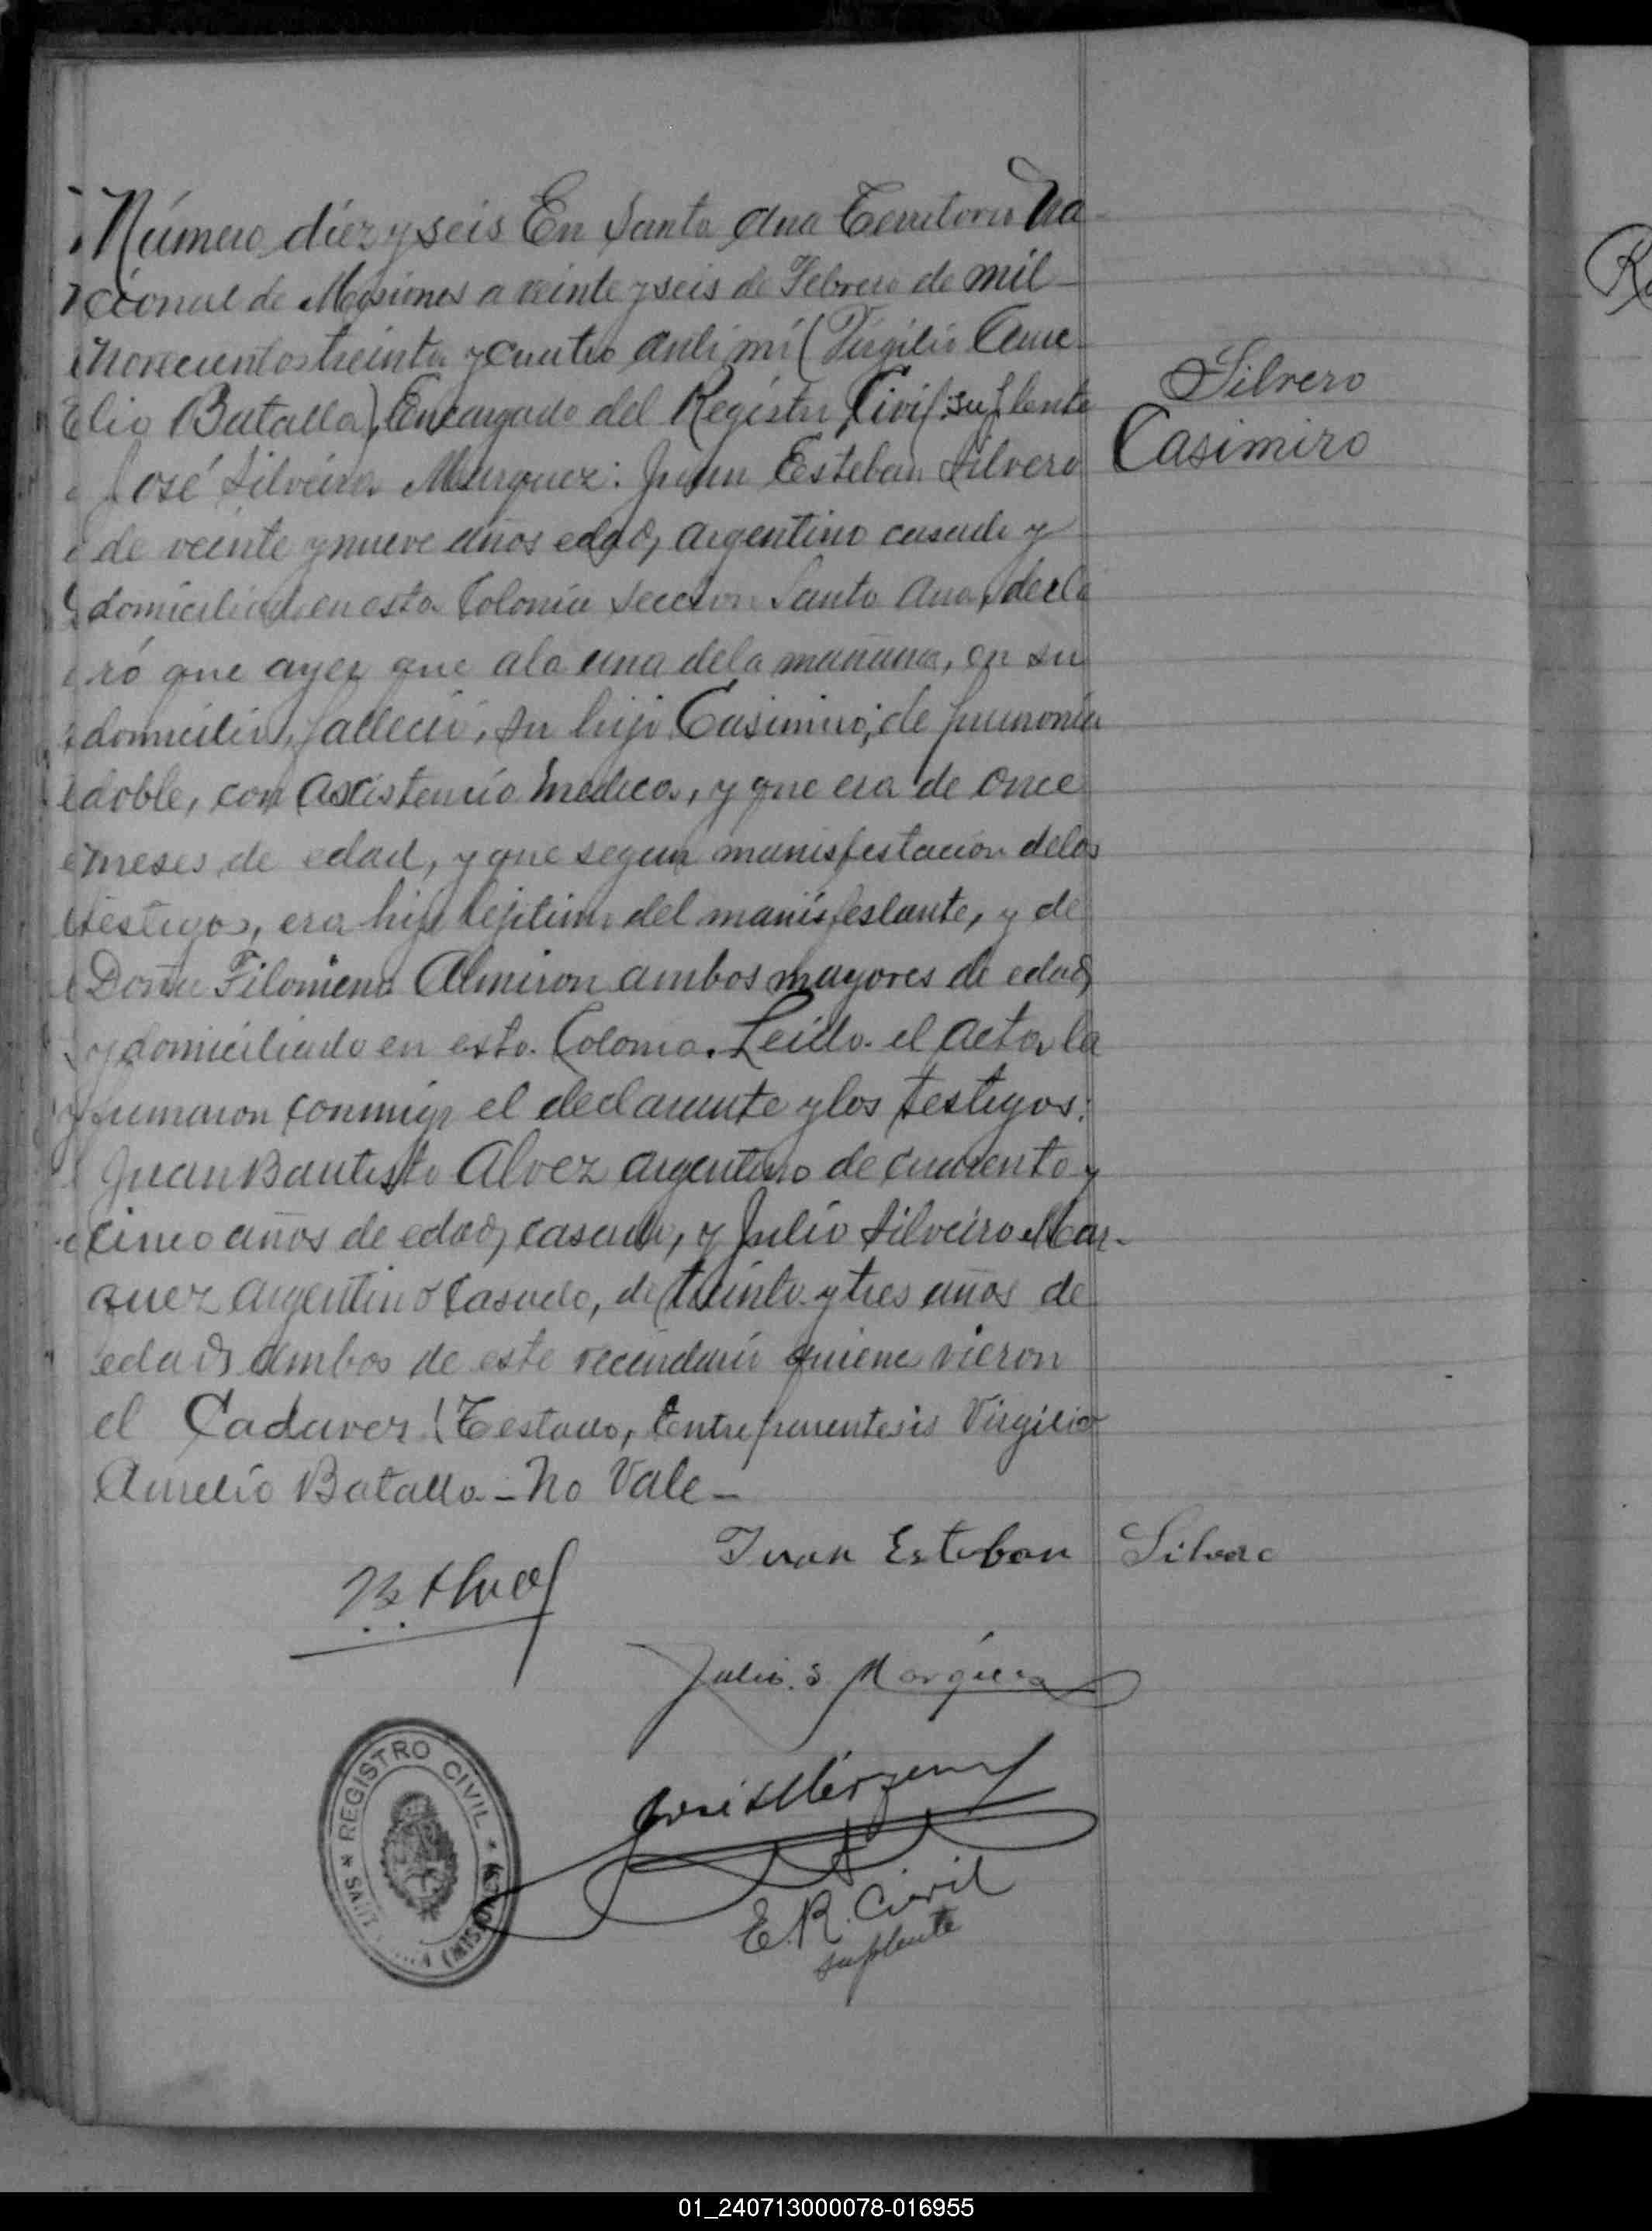 Número diez y seis En Santa Ana Territorio Na-
cional de Misiones a veinte y seis de Febrero de mil
novecientos treinta y cuatro ante mi (Virgilio Aure
elio Batalla), Encargado del Registro Civil suplente
José Silveira Marquez: Juan Esteban Silvero
de veinte y nueve años edad, argentino casado y
domiciliado en esta Colonia Seccion Santa Ana, decla
ró que ayer que a la una de la mañana, en su
domicilio, falleció, su hijo Casimiro; de pumonia
doble, con asistencia medica, y que era de once
meses de edad, y que segun manisfestación de los
testigos, era hijo lejitimo del manisfestante, y de
Doña Filomena Almiron ambos mayores de edad,
y domiciliado en esta Colonia. Leida el acta, la
firmaron conmigo el declarante y los testigos:
Juan Bautista Alvez argentino de cuarenta y
cinco años de edad, casado, y Julio Silveiro Mar-
quez argentino casado, de treinta y tres años de
edad, ambos de este vecindario quiene vieron
el Cadaver (Testado, Entreparentesis Virgilio
Aurelio Batalla - No Vale -
Silvero
Casimiro
Juan Esteban Silvero
B. Alvez
Julio. S. Márquez
José S Márquez
E. R. Civil
suplente
REGISTRO CIVIL
01_240713000078-016955